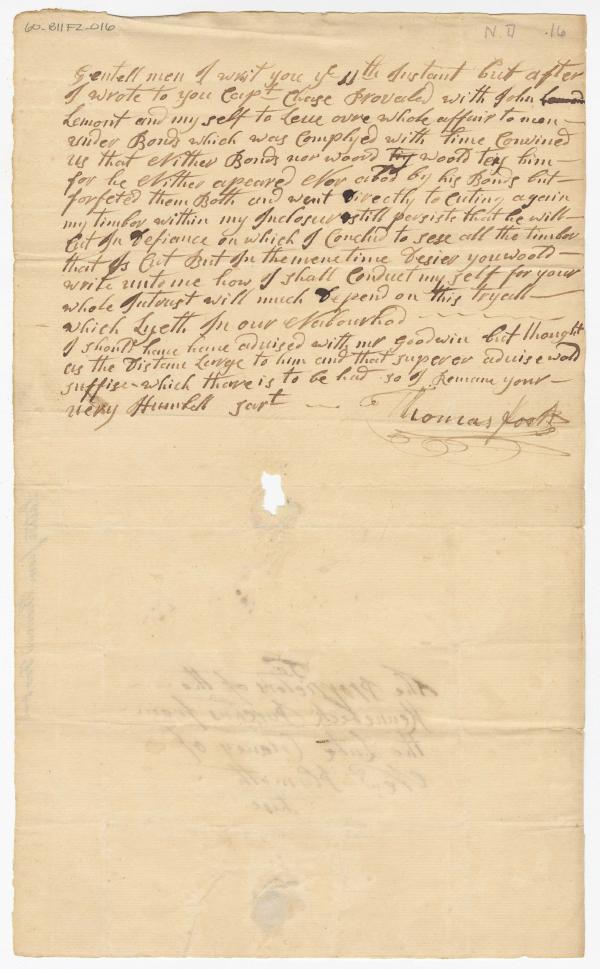 60-B11F2-016
N.D .16
Gentell men I writ you ye 11th Instant but after
I wrote to you Capt Chase Provaled with John
Lemont and my self to Leue ovre whole affair to men
under Bonds which was Complyed with time Convined
us that Nither Bonds nor woord woold tey him
for he Nither apeared Nor abod by his Bonds but
forfeted them Both and went Directly to Cuting again
my timber within my Inclosur still persists that he will
Cut In Defiance on which I Conclud to sese all the timber
that Is Cut But In the mene time Desier you woold
write unto me how I shall Conduct my self for your
whole Intrust will much Depend on this tryall
which Lyeth In our Neibourhod
I should haue haue advised with mr goodwin but thought
as the Distanc Large to him and that superer advise wold
suffise which there is to be had so I Remane your
very Humbell sart
Thomas
To
the Proprietors of the
Kennebeck Purchas from
the Late Colaney of
New Plimoth